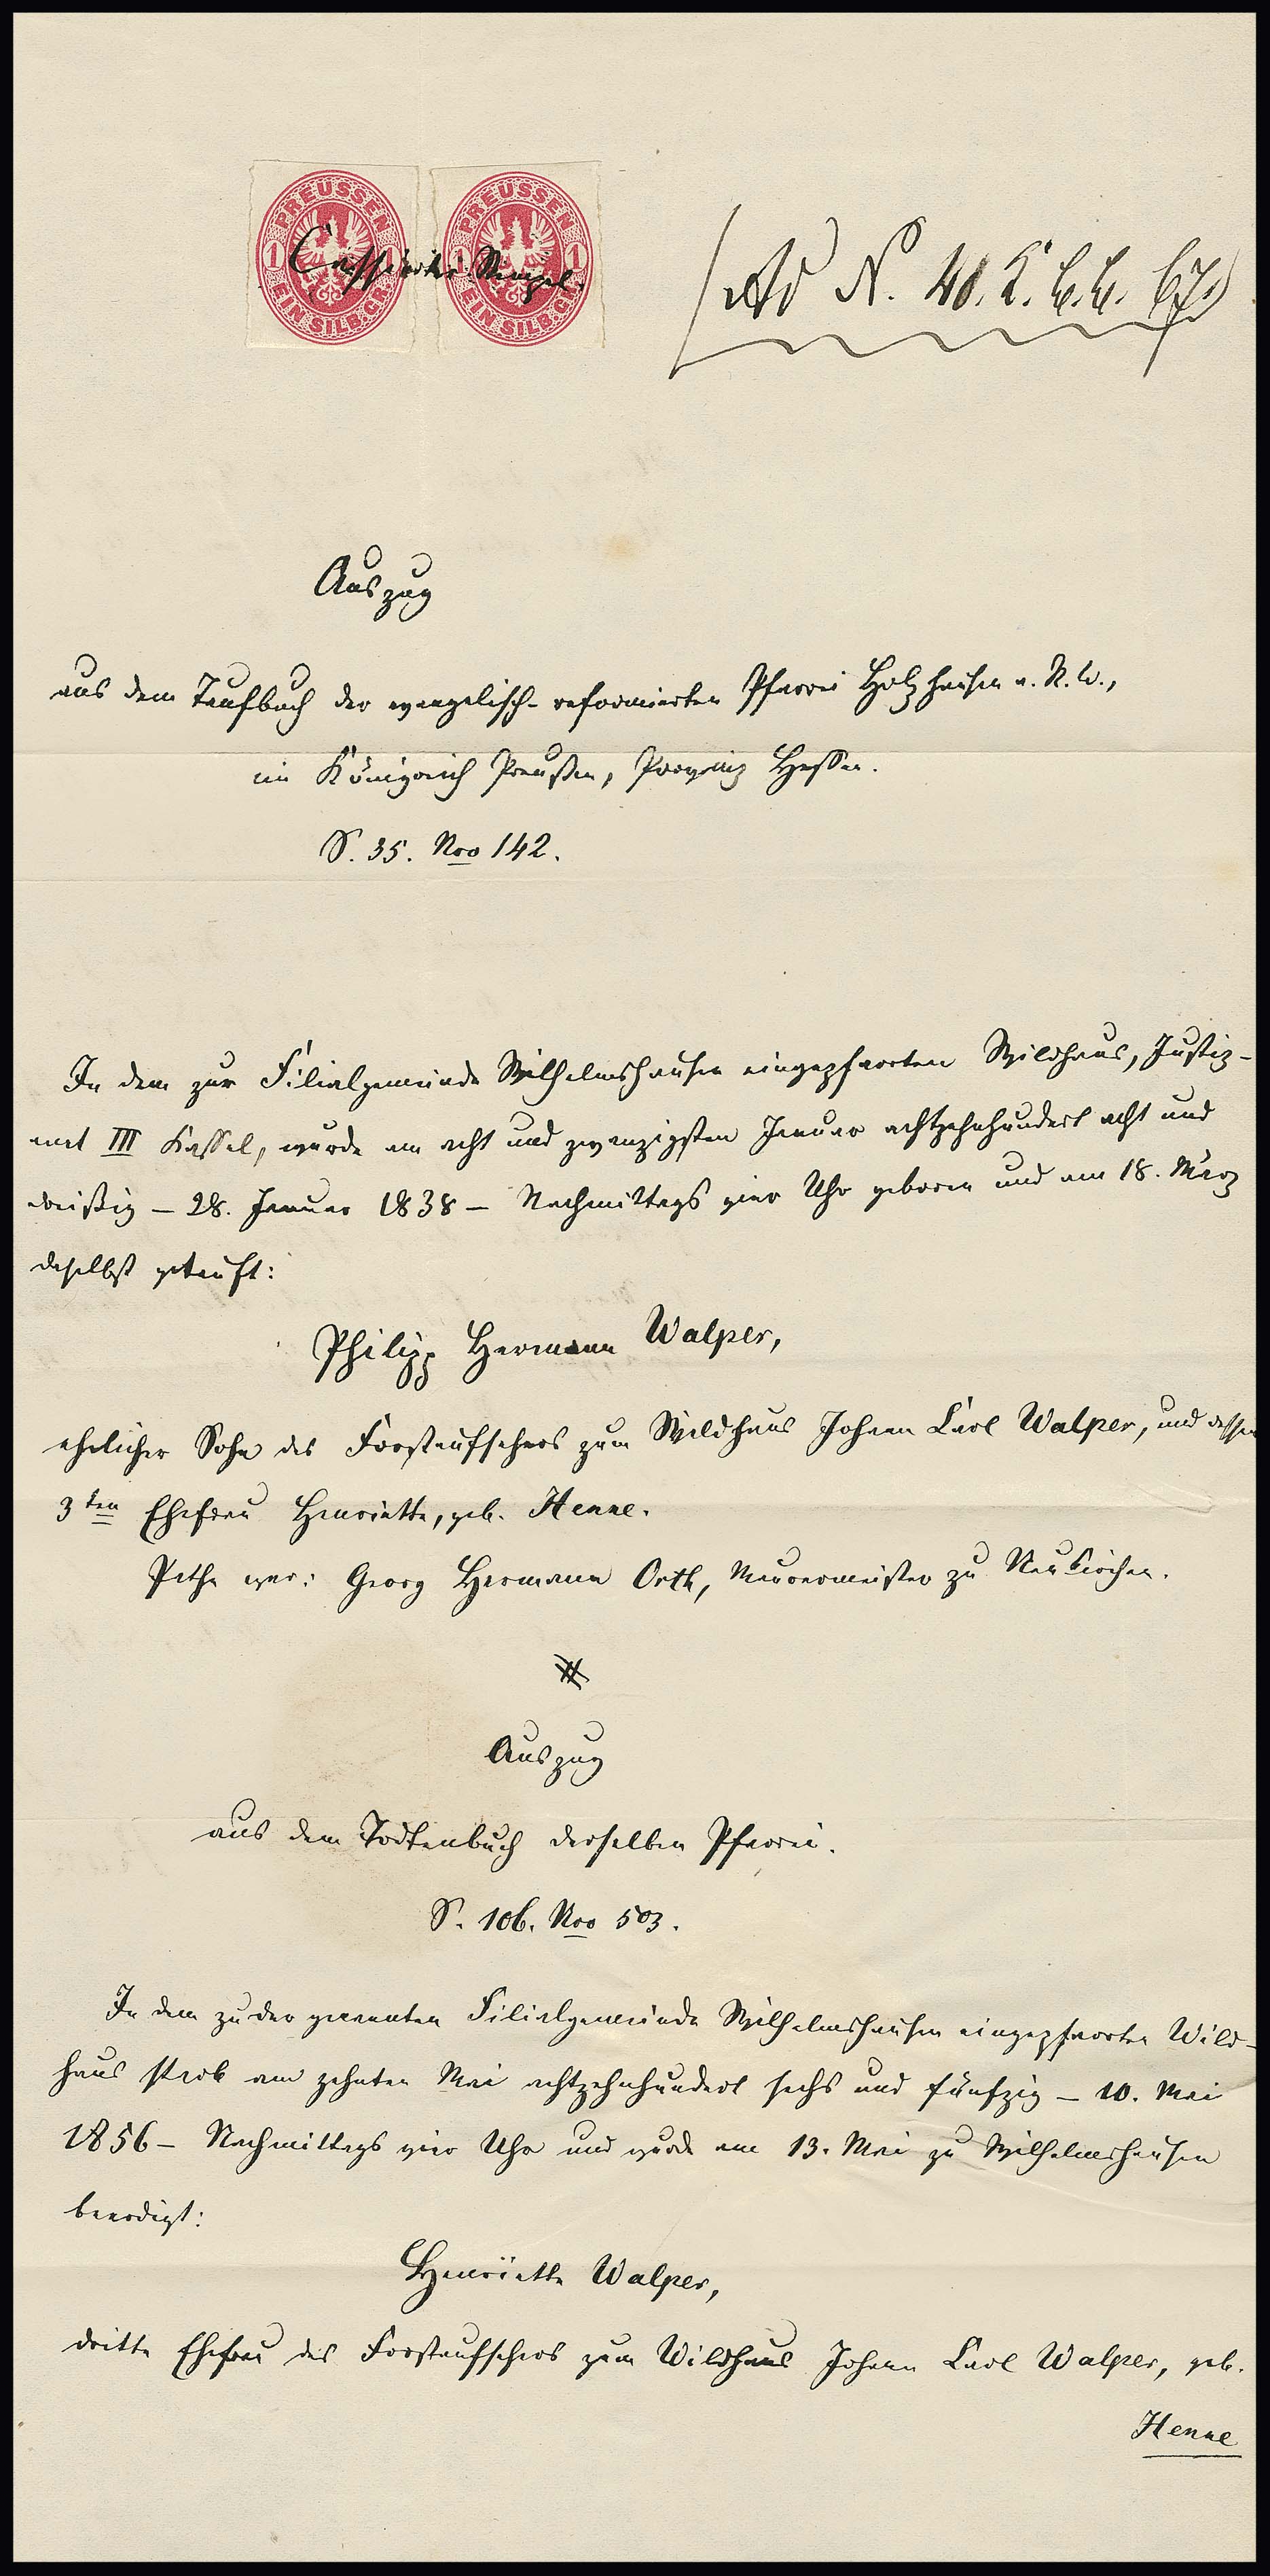 PREUSSEN
1 1
EIN SILB.GR.
PREUSSEN
1 1
EIN SILB.GR.
Cassirter Stempel.
Ad N. 40.
67.
Auszug
aus dem Taufbuch der evangelisch-reformirten Pfarrei Holzhausen a. R. W.,
im Königreich Preußen, Provinz Hessen.
S. 35. Nro 142.
In dem zur Filialgemeinde Wilhelmshausen eingepfarrten Wildhaus, Justiz-
amt III Kassel, wurde am acht und zwanzigsten Januar achtzehnhundert acht und
dreißig – 28. Januar 1838 – Nachmittags vier Uhr geboren und am 18. März
daselbst getauft:
Philipp Hermann Walper,
ehelicher Sohn des Forstaufsehers zum Wildhaus Johann Carl Walper, und dessen
3ten Ehefrau Henriette, geb. Henne.
Pathe war: Georg Hermann Orth, Maurermeister zu Neukirchen.
Auszug
aus dem Todtenbuch derselben Pfarrei.
S. 106. Nro 503.
In dem zu der genannten Filialgemeinde Wilhelmshausen eingepfarrten Wild-
haus starb am zehnten Mai achtzehnhundert sechs und fünfzig – 10. Mai
1856 – Nachmittags vier Uhr und wurde am 13. Mai zu Wilhelmshausen
beerdigt:
Henriette Walper,
dritte Ehefrau des Forstaufsehers zum Wildhaus Johann Carl Walper, geb.
Henne